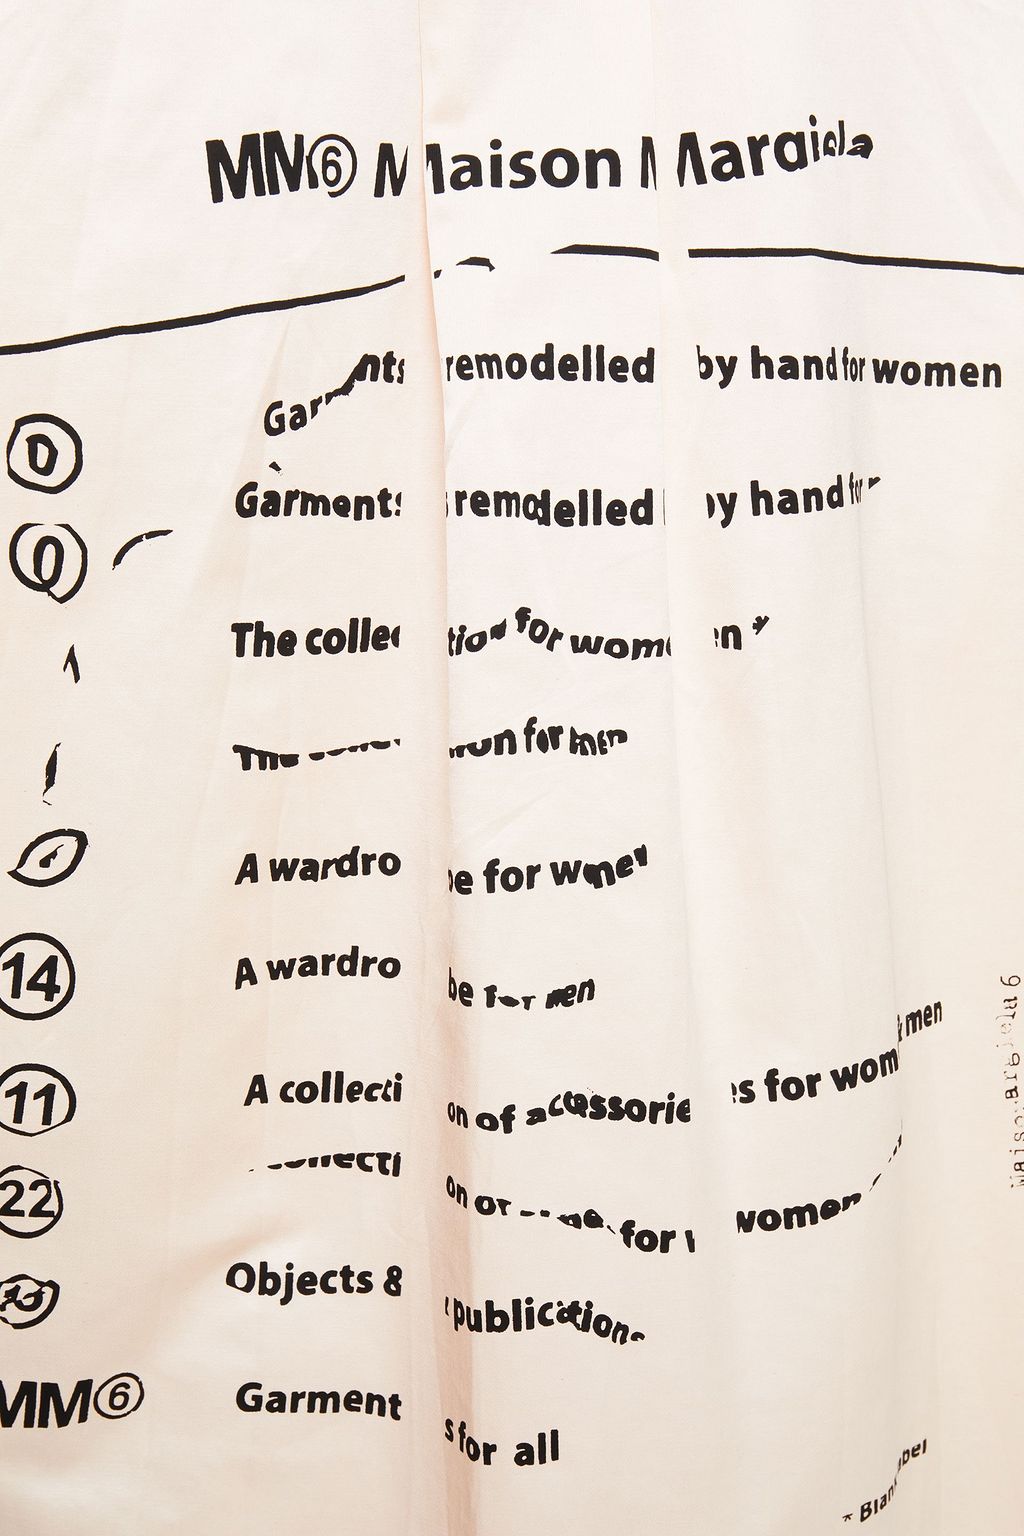 MM6 Maison Margiela
Garments remodelled by hand for women
0 Garments remodelled by hand for
The collection for women *
The collection for men
A wardrobe for women
14 A wardrobe for men
11 A collection of accessories for women & men
22 collection of for women
Objects & publications
MM6 Garments for all
* Blank label
Maison Margiela 6